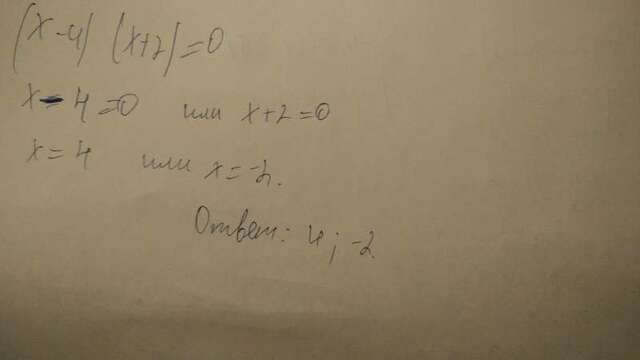 (x-4) (x+2)=0
x-4=0 или x+2=0
x=4 или x=-2.
Ответ: 4; -2.